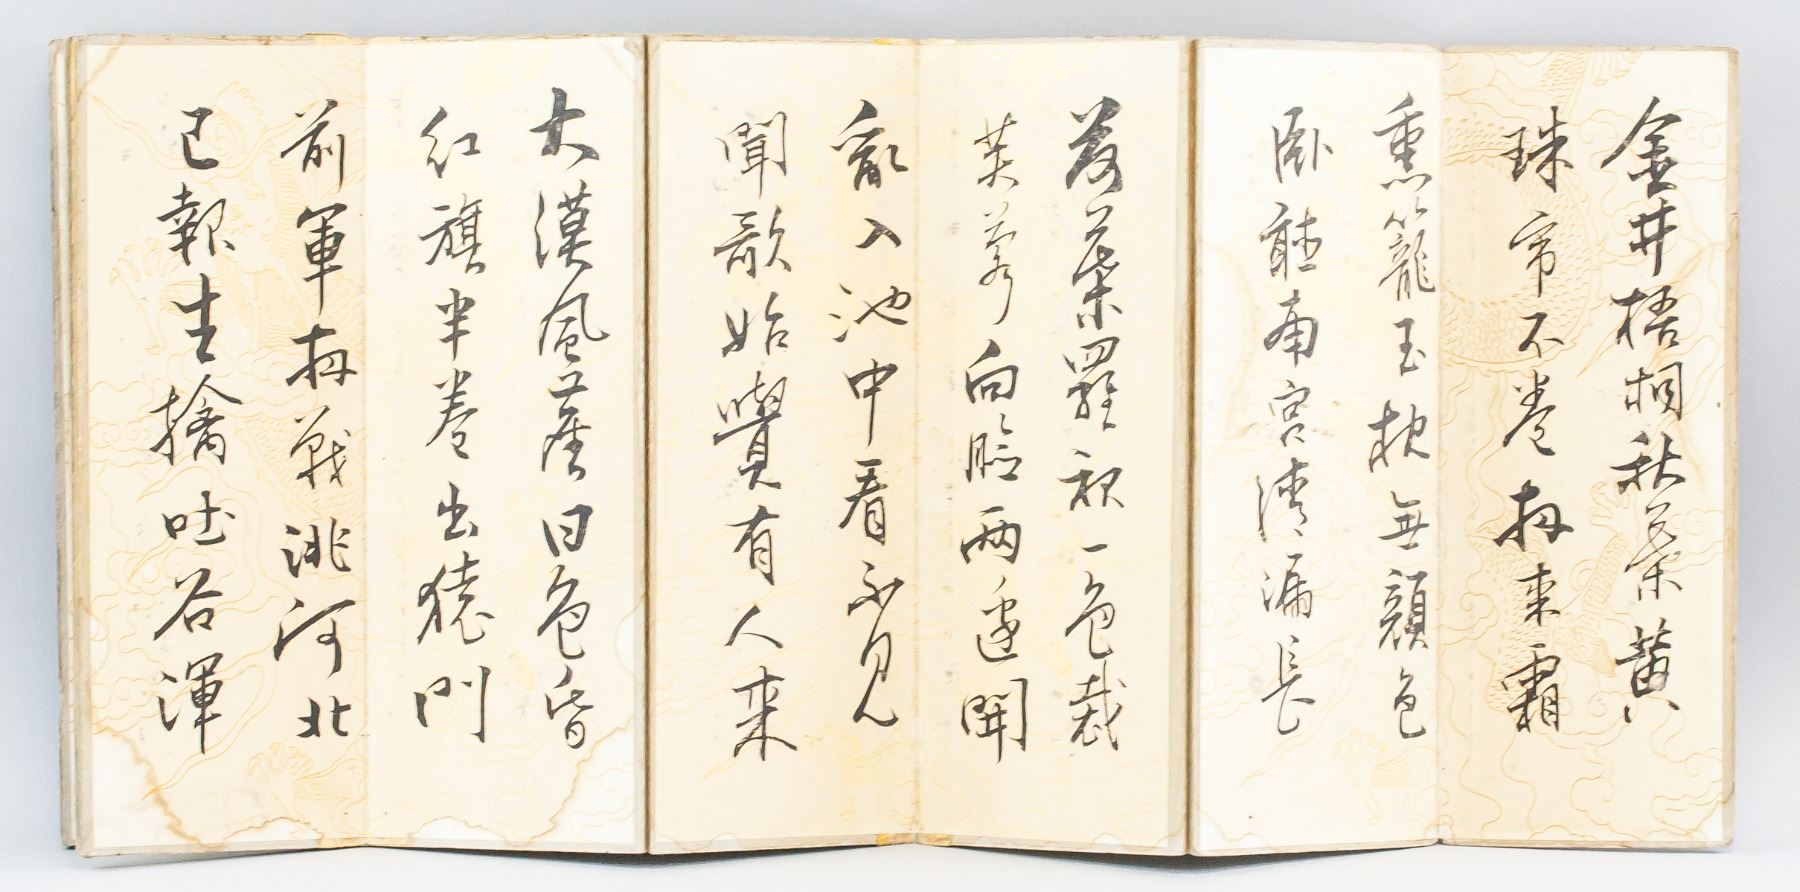 金井梧桐秋葉黃
珠帘不卷夜來霜
熏籠玉枕無顏色
臥聽南宮清漏長
荷葉羅裙一色裁
芙蓉向臉兩邊開
亂入池中看不見
聞歌始覺有人來
大漠風塵日色昏
紅旗半卷出轅門
前軍夜戰洮河北
已報生擒吐谷渾